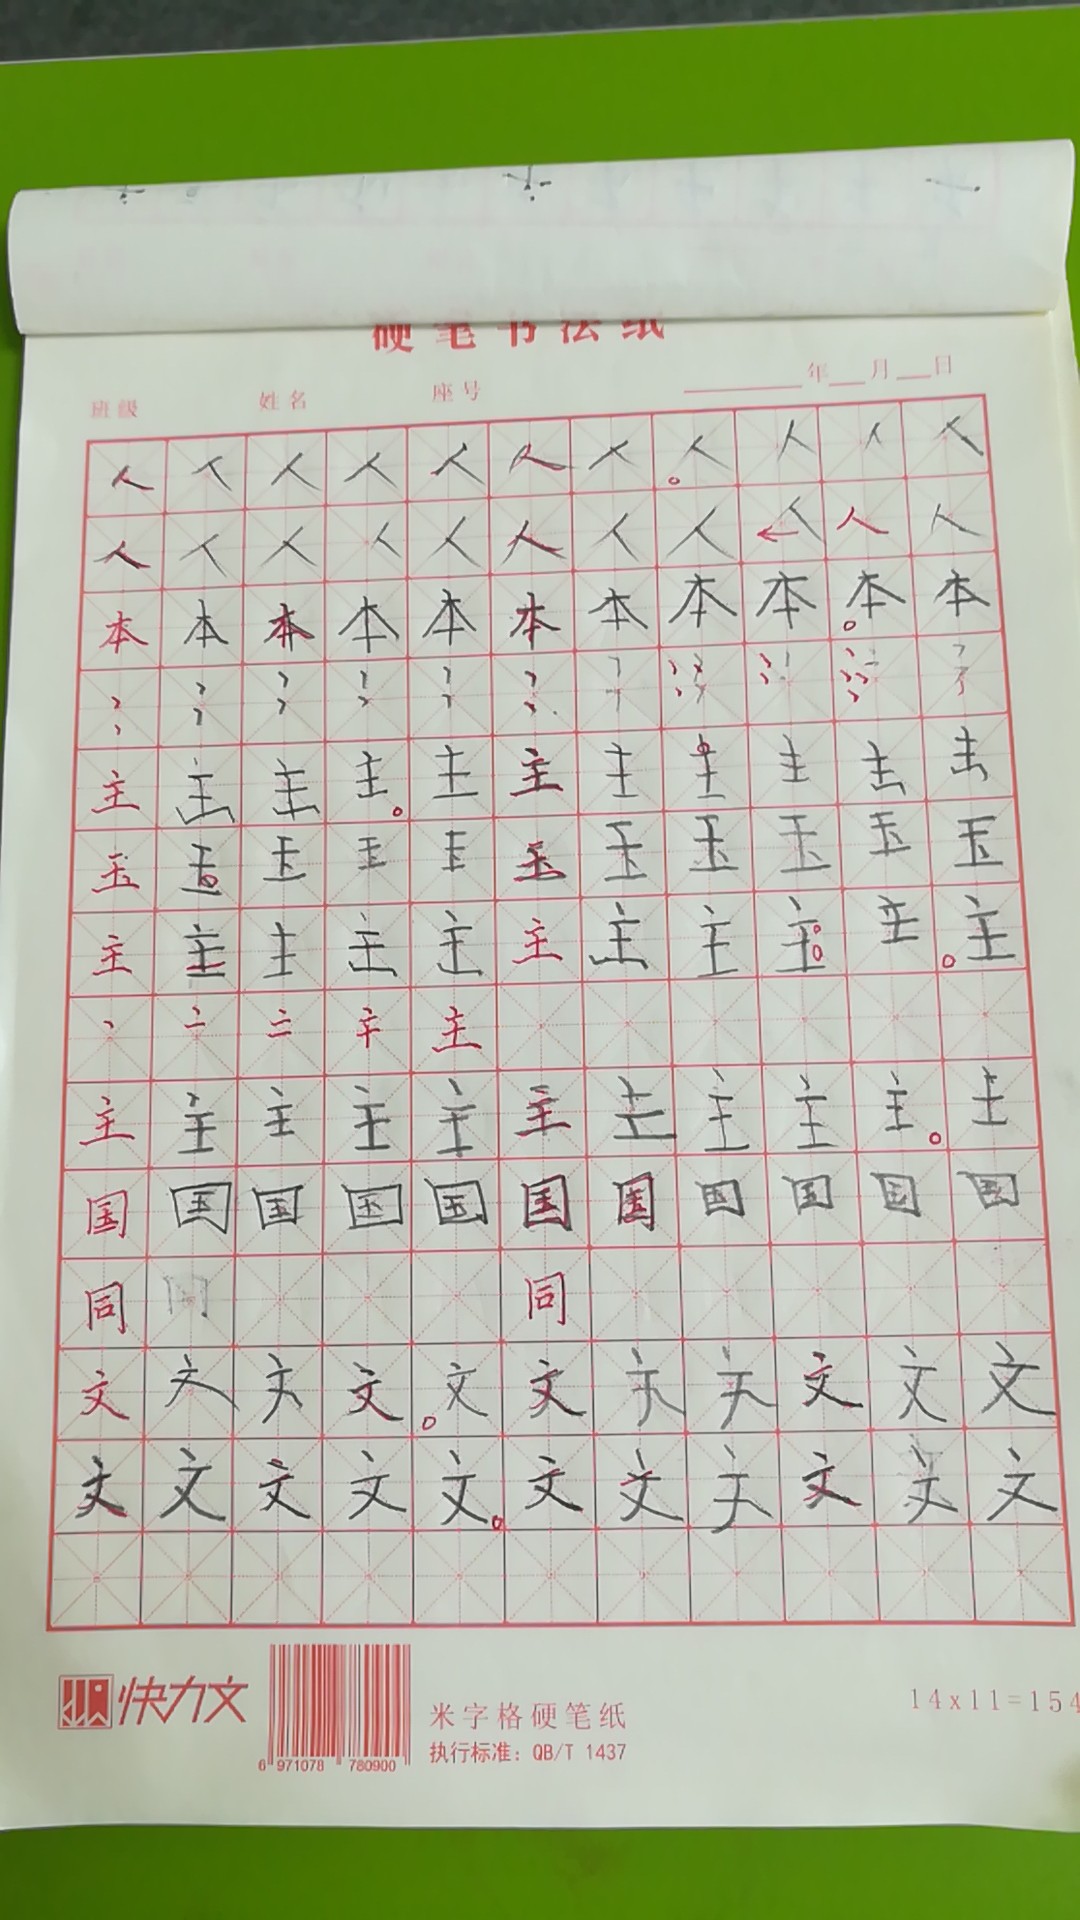 硬笔书法纸
班级 姓名 座号 年 月 日
人 人 人 人 人 人 人 人 人 人 人
人 人 人 人 人 人 人 人 人 人 人
本 本 本 本 本 本 本 本 本 本 本
主 主 主 主 主 主 主 主 主 主 主
玉 玉 玉 玉 玉 玉 玉 玉 玉 玉 玉
主 主 主 主 主 主 主 主 主 主 主
丶 亠 主
主 主 主 主 主 主 主 主 主 主 主
国 国 国 国 国 国 国 国 国 国 国
同 同 同
文 文 文 文 文 文 文 文 文 文 文
文 文 文 文 文 文 文 文 文 文 文
快力文
6 971078 780900
米字格硬笔纸
执行标准：QB/T 1437
14x11=154